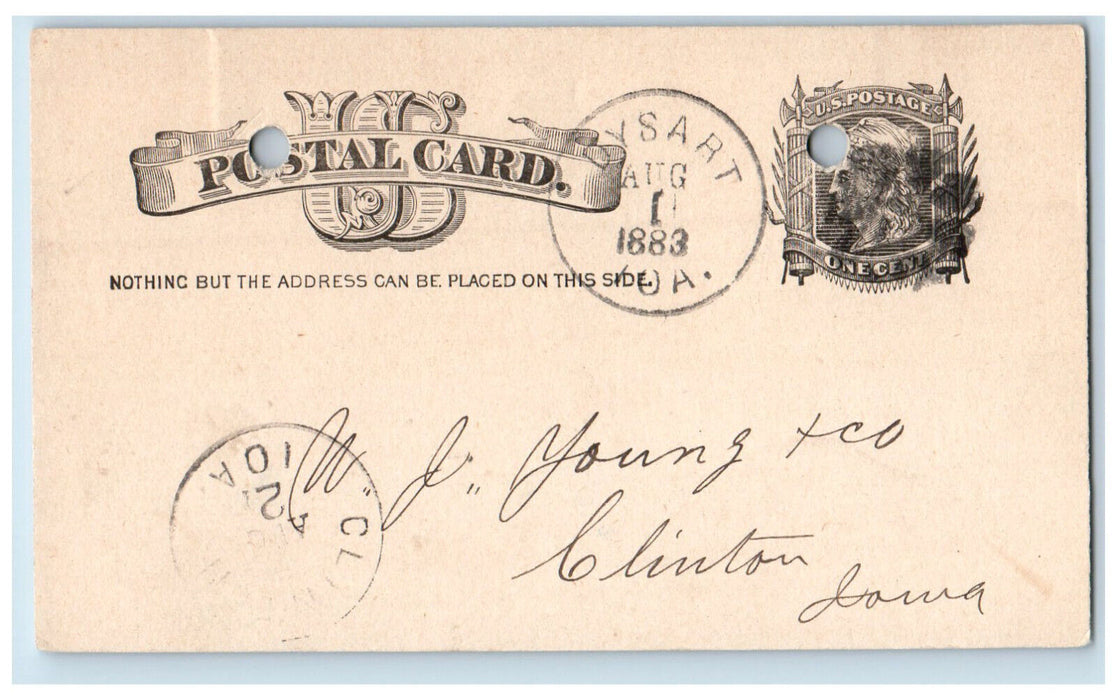 US
POSTAL CARD.
NOTHING BUT THE ADDRESS CAN BE PLACED ON THIS SIDE.
YSART
AUG
1
1883
IOA.
U.S. POSTAGE
ONE CENT
W. J. Young + co
Clinton
Iowa
CL
IOA